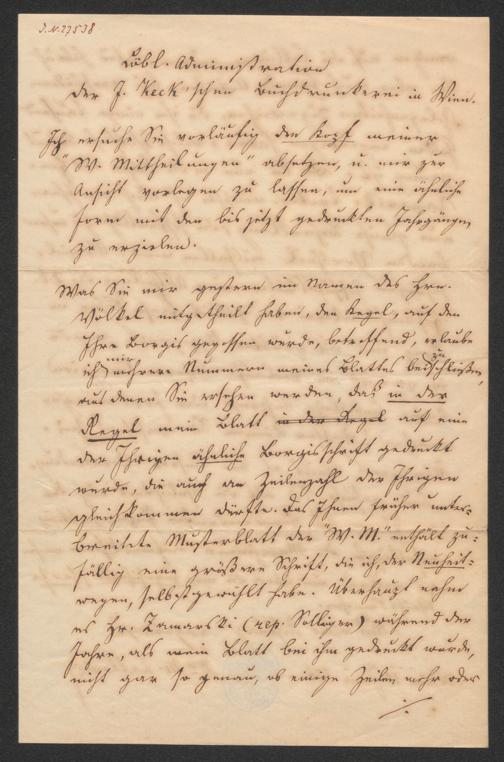 J.N. 27538
Löbl. Administration
der J. Keck'schen Buchdruckerei in Wien.
Ich ersuche Sie vorläufig den Kopf meiner
"W. Mittheilungen" absetzen, u. mir zur
Ansicht vorlegen zu lassen, um eine ähnliche
Form mit den bis jetzt gedruckten Jahrgängen
zu erzielen.
Was Sie mir gestern im Namen des Hrn.
Völkel mitgetheilt haben, den Kegel, auf den
Ihre Borgis gegossen wurde, betreffend, erlaube
ich mir mehrere Nummern meines Blattes beizuschließen,
aus denen Sie ersehen werden, daß in der
Regel mein Blatt in der Regel auf eine
der Ihrigen ähnliche Borgisschrift gedruckt
wurde, die auch an Zeilenzahl der Ihrigen
gleichkommen dürfte. Das Ihnen früher unter-
breitete Musterblatt der "W. M." enthält zu-
fällig eine größere Schrift, die ich, der Neuheit
wegen, selbst gewählt habe. Überhaupt nahm
es Hr. Zamarski (resp. Sollinger) während der
Jahre, als mein Blatt bei ihm gedruckt wurde,
nicht gar so genau, ob einige Zeilen mehr oder
./.